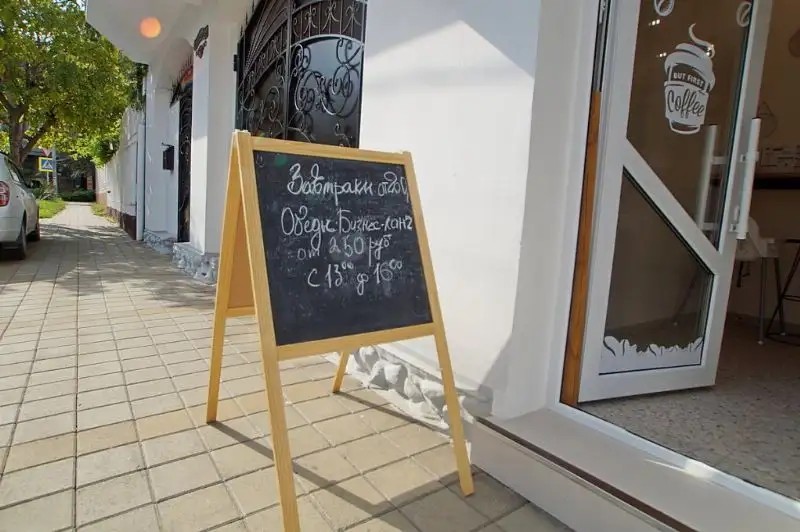 Завтраки
Обеды: Бизнес-ланч
от 250 руб
с 12⁰⁰ до 16⁰⁰
BUT FIRST
Coffee